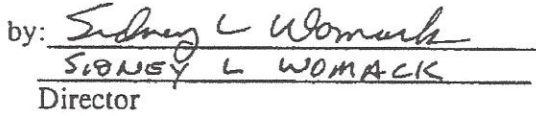 by: Sidney L Womack
SIDNEY L WOMACK
Director